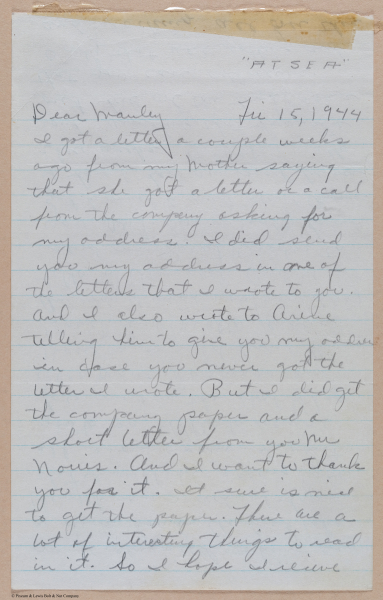 "AT SEA"
Dear Manley Fri 15, 1944
I got a letter a couple weeks
ago from my Mother saying
that she got a letter or a call
from the company asking for
my address. I did send
you my address in one of
the letters that I wrote to you.
And I also wrote to
telling him to give you my address
in case you never got the
letter I wrote. But I did get
the company paper and a
short letter from you Mr
Norris. And I want to thank
you for it. It sure is nice
to get the paper. There are a
lot of interesting things to read
in it. So I hope I recieve
© Peasant & Lewis Bolt & Nut Company